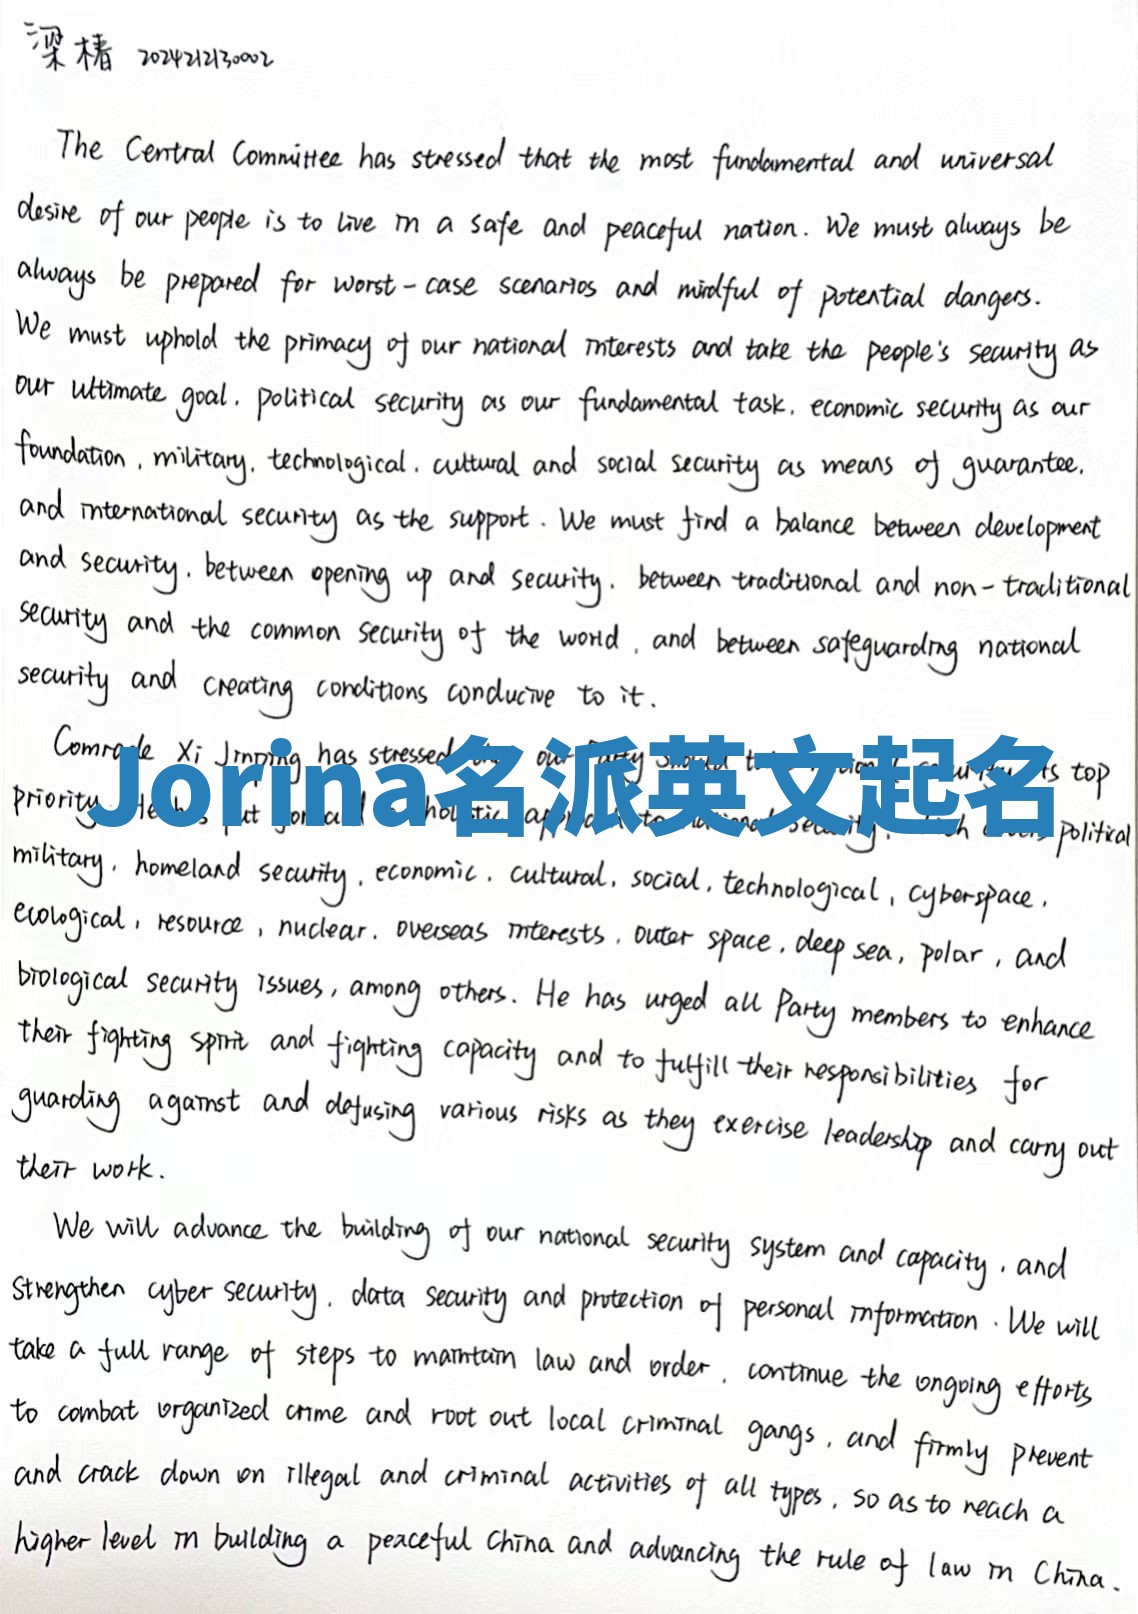 梁椿 2024212130002
The Central Committee has stressed that the most fundamental and universal
desire of our people is to live in a safe and peaceful nation. We must always be
always be prepared for worst-case scenarios and mindful of potential dangers.
We must uphold the primacy of our national interests and take the people's security as
our ultimate goal, political security as our fundamental task, economic security as our
foundation, military, technological, cultural and social security as means of guarantee,
and international security as the support. We must find a balance between development
and security, between opening up and security, between traditional and non-traditional
security and the common security of the world, and between safeguarding national
security and creating conditions conducive to it.
Comrade Xi Jinping has stressed our Party should top
Jorina名派英文起名
priority. put holistic to national security, political
military, homeland security, economic, cultural, social, technological, cyberspace,
ecological, resource, nuclear, overseas interests, outer space, deep sea, polar, and
biological security issues, among others. He has urged all Party members to enhance
their fighting spirit and fighting capacity and to fulfill their responsibilities for
guarding against and defusing various risks as they exercise leadership and carry out
their work.
We will advance the building of our national security system and capacity, and
strengthen cyber security, data security and protection of personal information. We will
take a full range of steps to maintain law and order, continue the ongoing efforts
to combat organized crime and root out local criminal gangs, and firmly prevent
and crack down on illegal and criminal activities of all types, so as to reach a
higher level in building a peaceful China and advancing the rule of law in China.